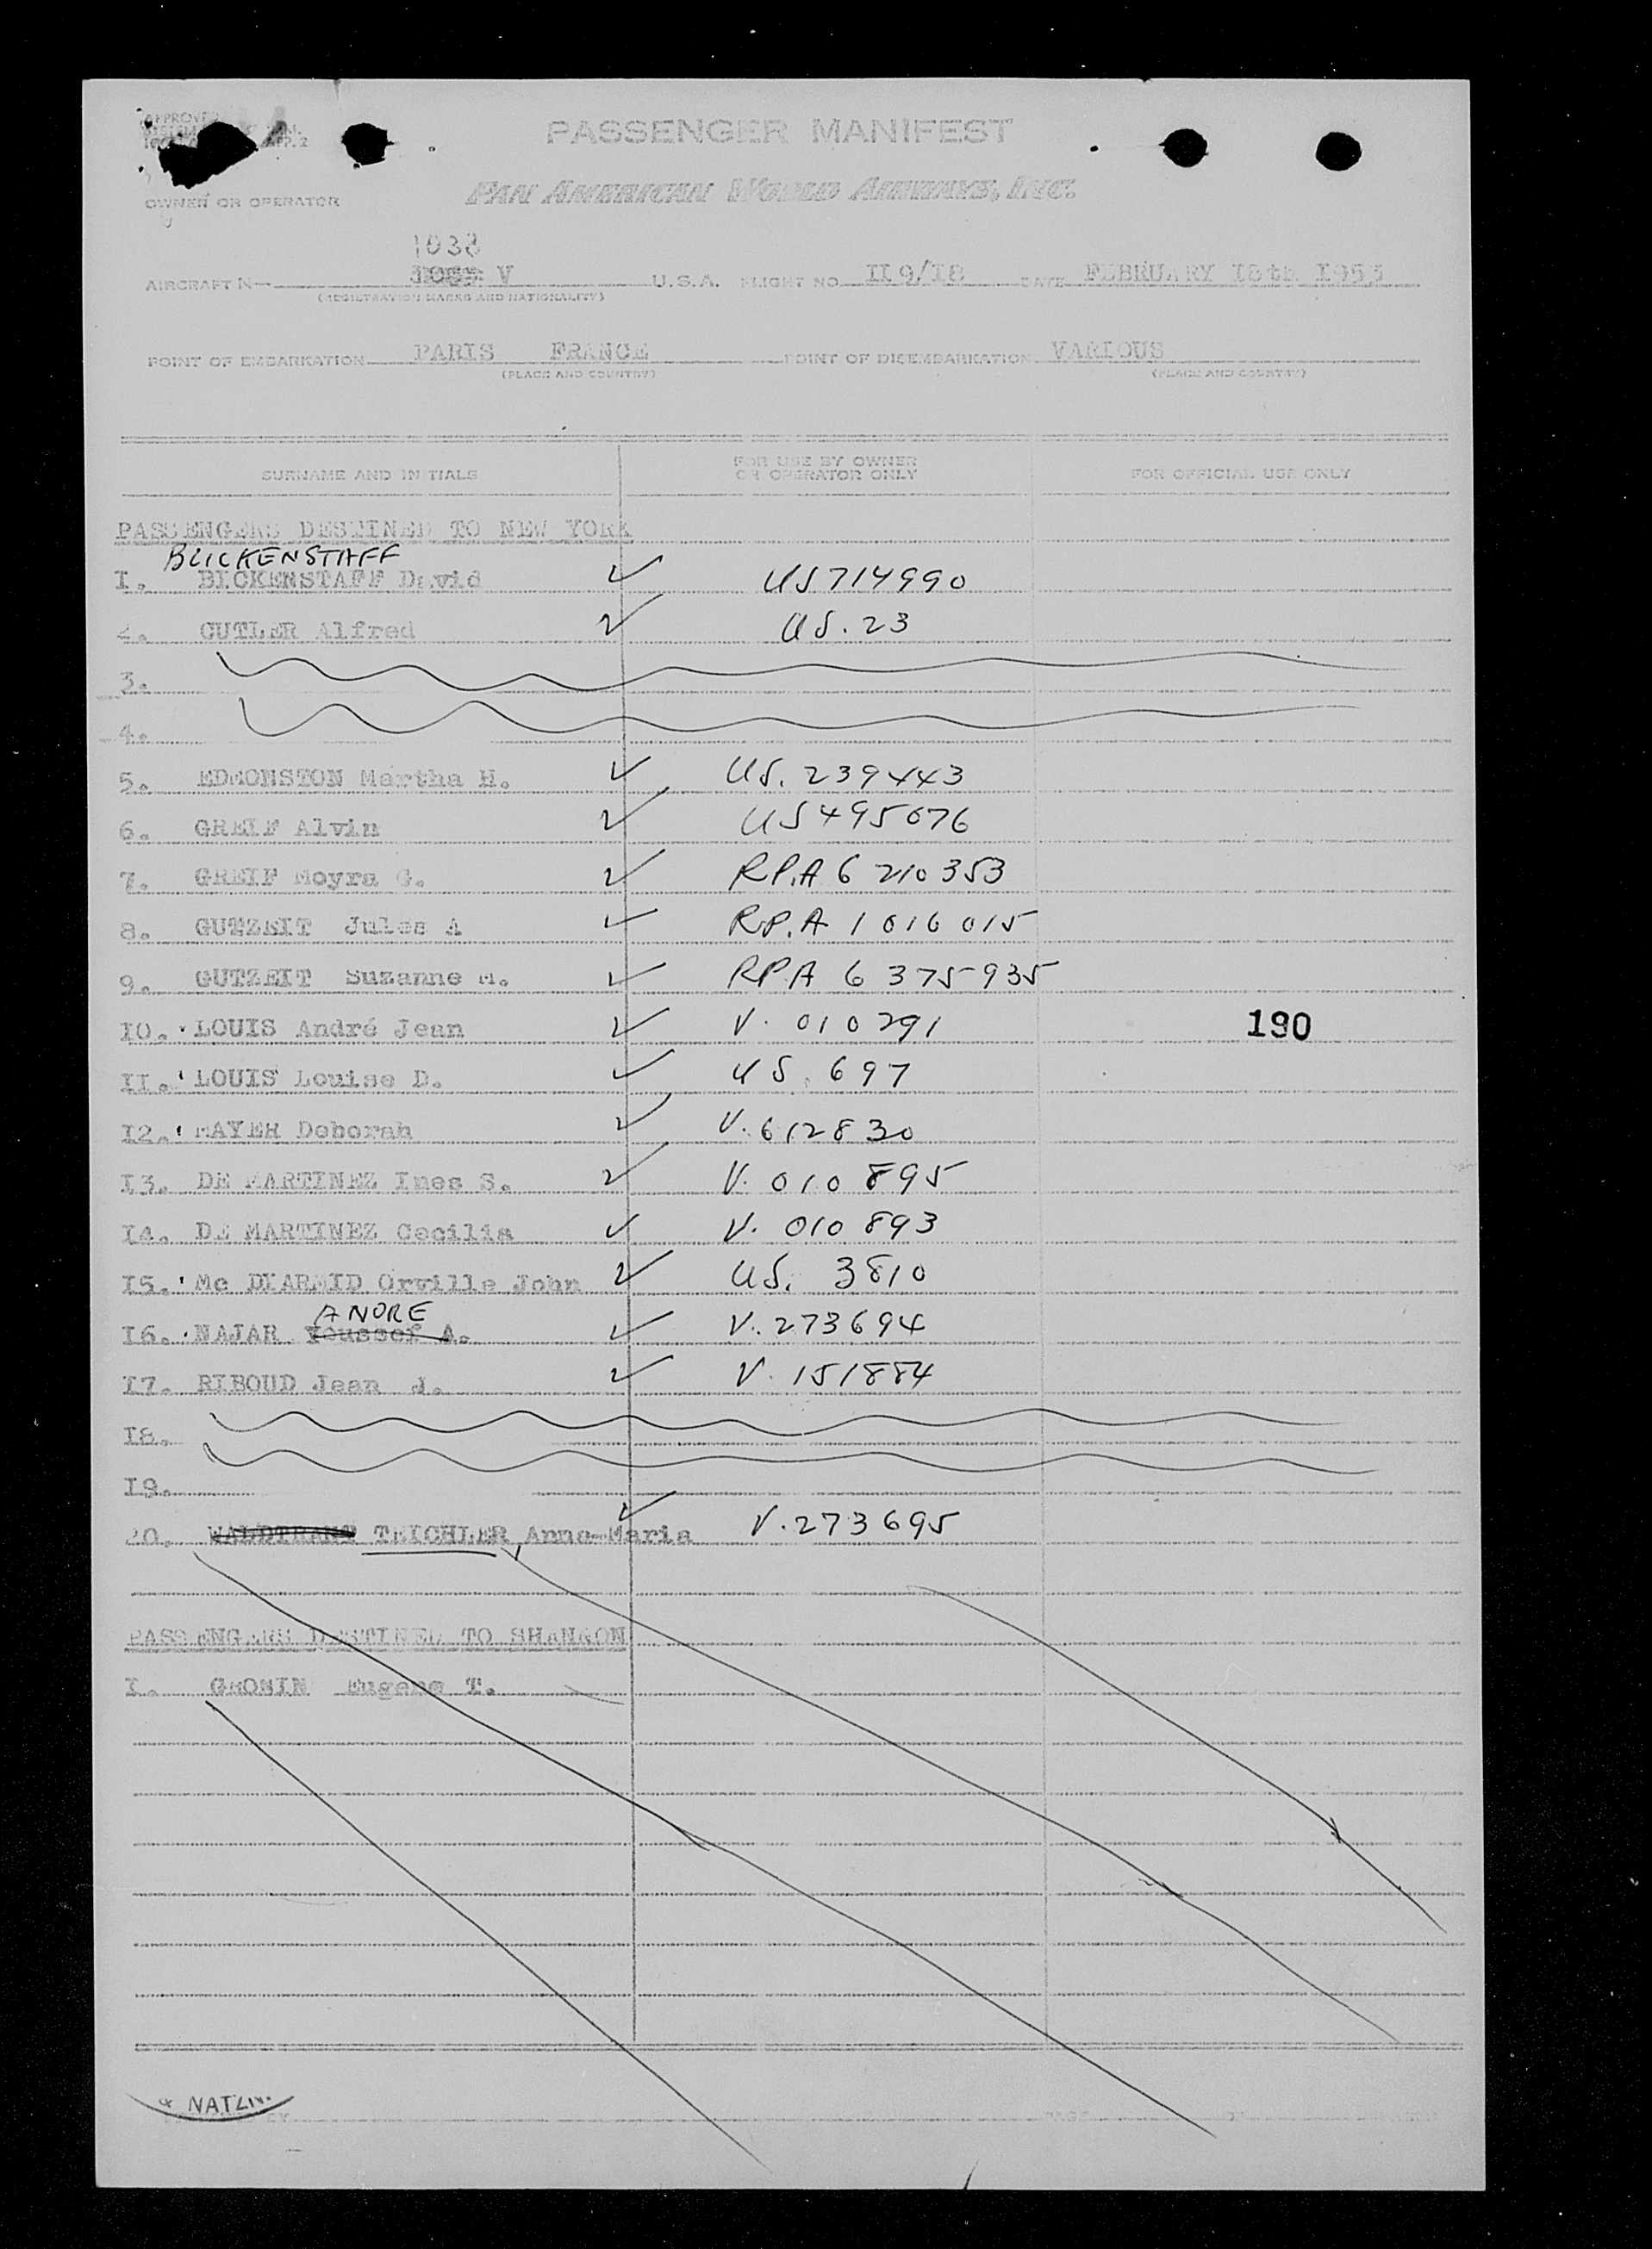 APPROVED
APP. 2
PASSENGER MANIFEST
PAN AMERICAN WORLD AIRWAYS, INC.
OWNER OR OPERATOR
1038
AIRCRAFT N— V U.S.A. FLIGHT NO. II9/I8 DATE FEBRUARY I8th I953
(REGISTRATION MARKS AND NATIONALITY)
POINT OF EMBARKATION PARIS FRANCE POINT OF DISEMBARKATION VARIOUS
(PLACE AND COUNTRY) (PLACE AND COUNTRY)
SURNAME AND INITIALS FOR USE BY OWNER OR OPERATOR ONLY FOR OFFICIAL USE ONLY
PASSENGERS DESTINED TO NEW YORK
BLICKENSTAFF
I. BICKENSTAFF David ✓ US 714990
2. CUTLER Alfred ✓ US. 23
3.
4.
5. EDMONSTON Martha H. ✓ US. 239443
6. GREIF Alvin ✓ US 495676
7. GREIF Moyra G. ✓ RP.A 6 210 353
8. GUTZEIT Jules A ✓ RP.A 1 016 015
9. GUTZEIT Suzanne M. ✓ RP.A 6 375 935
IO. LOUIS André Jean ✓ V. 010291 190
II. LOUIS Louise D. ✓ US. 697
I2. MAYER Deborah ✓ V. 612830
I3. DE MARTINEZ Ines S. ✓ V. 010 895
I4. DE MARTINEZ Cecilia ✓ V. 010 893
I5. Mc DIARMID Orville John ✓ US. 3810
ANDRE
I6. NAJAR Youssef A. ✓ V. 273694
I7. RIBOUD Jean J. ✓ V. 151884
I8.
I9.
20. WALDTRANT TEICHLER Anna-Maria ✓ V. 273695
PASSENGERS DESTINED TO SHANNON
I. GRONIN Eugene T.
PAGE